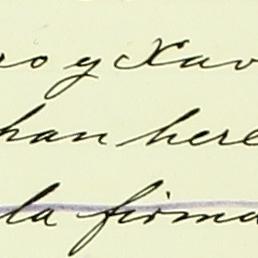 so y Xav
han here
la firma